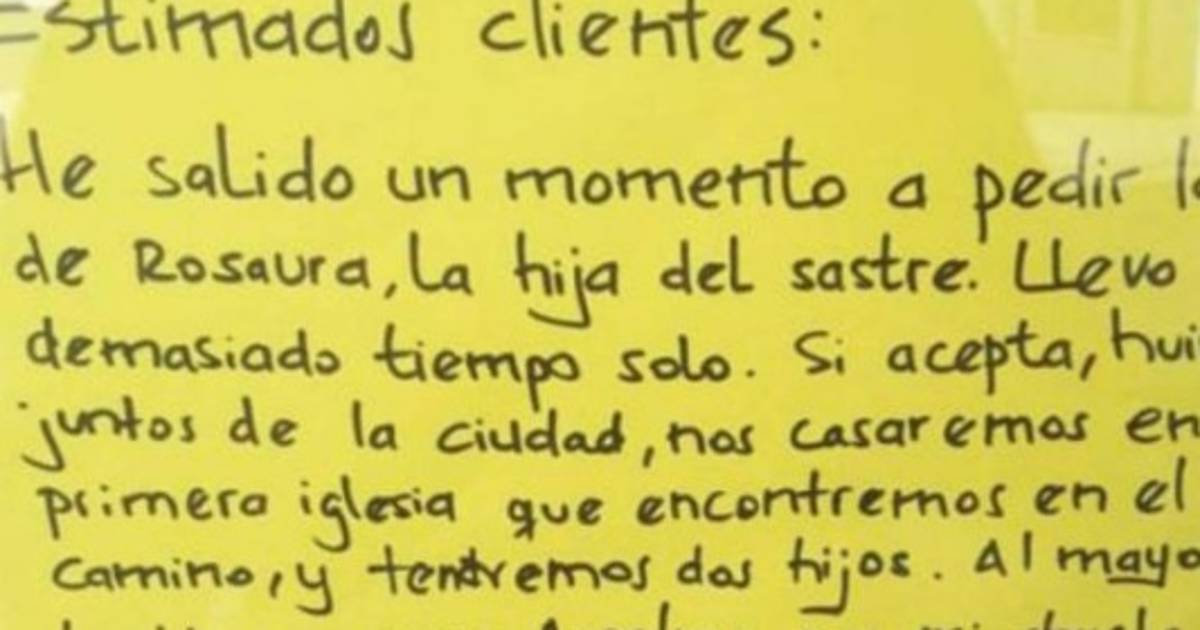 Estimados clientes:
He salido un momento a pedir
de Rosaura, la hija del sastre. Llevo
demasiado tiempo solo. Si acepta,
juntos de la ciudad, nos casaremos en
primera iglesia que encontremos en el
camino, y tendremos dos hijos. Al